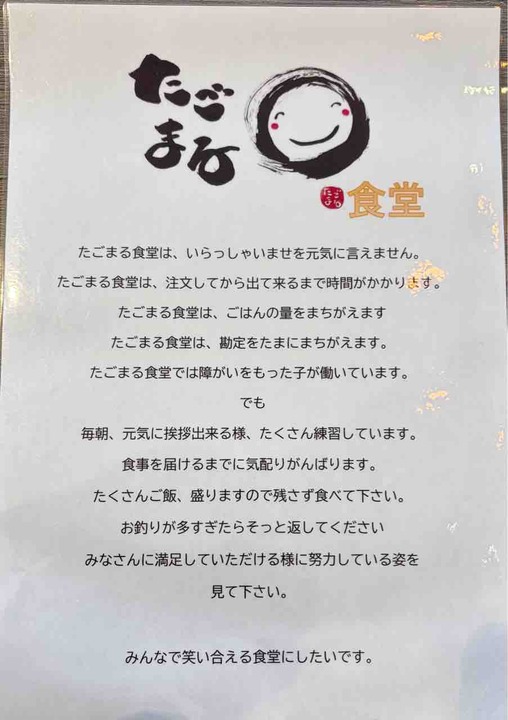 たご
まる
たごまる
食堂
たごまる食堂は、いらっしゃいませを元気に言えません。
たごまる食堂は、注文してから出て来るまで時間がかかります。
たごまる食堂は、ごはんの量をまちがえます
たごまる食堂は、勘定をたまにまちがえます。
たごまる食堂では障がいをもった子が働いています。
でも
毎朝、元気に挨拶出来る様、たくさん練習しています。
食事を届けるまでに気配りがんばります。
たくさんご飯、盛りますので残さず食べて下さい。
お釣りが多すぎたらそっと返してください
みなさんに満足していただける様に努力している姿を
見て下さい。
みんなで笑い合える食堂にしたいです。